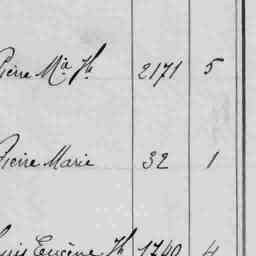 Pierre Mia Jh 2171 5
Pierre Marie 32 1
Louis Eugène Jh 1740 4